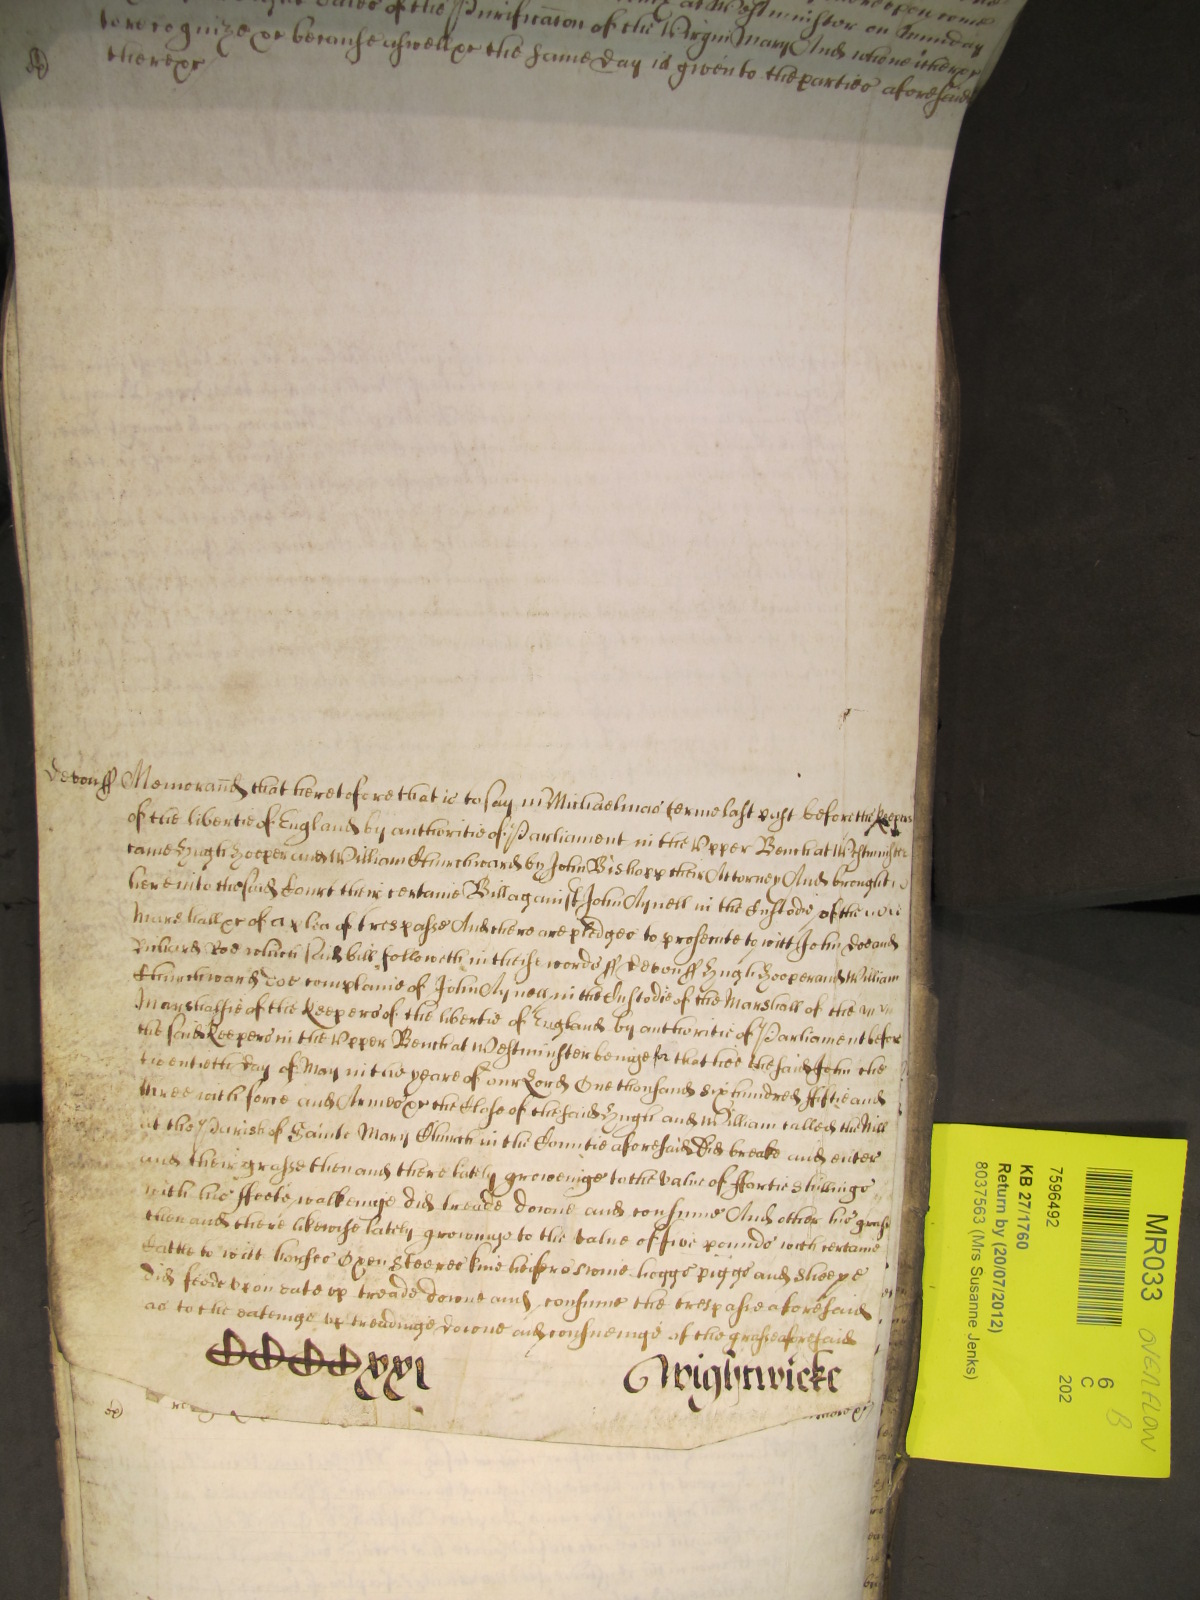 dayes of the Purificacon of the Virgin Mary And whoneither xc
to recognize xc because aswell xc the same day is given to the parties aforesaid
there xc
Devon ff Memorand that heretofore that is to say in Michaelmas terme last past before the Keepers
of the libertie of England by authoritie of Parliament in the Upper Bench at Westminster
came Hugh Hooper and William Churchward by John Bishopp their Attorney And brought
here into the said Court their certaine Bill against John Aynell in the Custodie of the
Marshall xc of a plea of trespasse And there are pledges to prosecute to witt John Doe and
Richard Roe which said bill followeth in theise words ff Devon ff Hugh Hooper and William
Churchward doe complaine of John Aynell in the Custodie of the Marshall of the
Marshalsie of the Keepers of the libertie of England by authoritie of Parliament before
the said Keepers in the Upper Bench at Westminster beinge for that hee the said John the
twentieth day of May in the yeare of our Lord One thousand six hundred fiftie and
three with force and Armes xc the Close of the said Hugh and William called the Hill
at the Parish of Sainte Mary Church in the Countie aforesaid did breake and enter
and their grasse then and there lately groweinge to the value of ffortie shillings
with his ffeete walkeinge did treade downe and consume And other his grasse
then and there likewise lately groweinge to the value of five pounds with certaine
Cattle to witt horses Oxen steeres kine heifers swine hoggs piggs and sheepe
did feede upon eate up treade downe and consume the trespasse aforesaid
as to the eateinge up treadinge downe and consueinge of the grasse aforesaid
xxi Wightwicke
MR033
OVERFLOW
B
6
C
202
7596492
KB 27/1760
Return by (20/07/2012)
8037563 (Mrs Susanne Jenks)